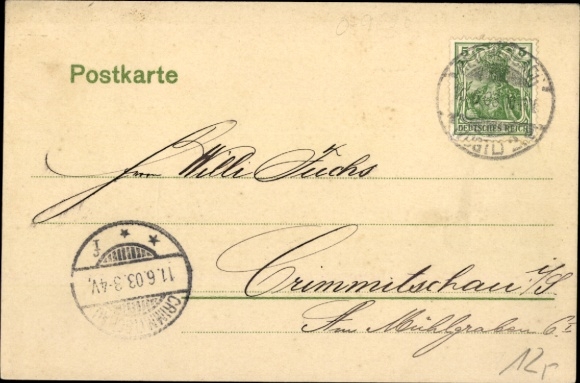 5 5
DEUTSCHES REICH
Postkarte
Herrn Willi Fuchs
Crimmitschau i/S
Am Mühlgraben 6 I
11.6.03.3-4V.
f
12,